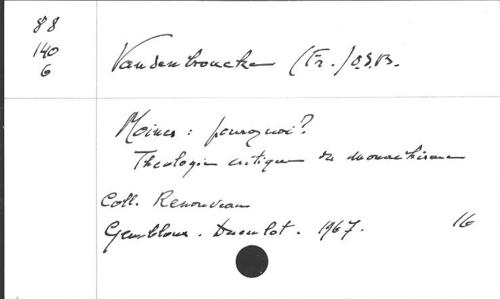 88
140
6
Vandenbroucke (Fr.) O.S.B.
Moines : pourquoi?
Théologie critique du monachisme
Coll. Renouveau
Gembloux. Duculot. 1967. 16